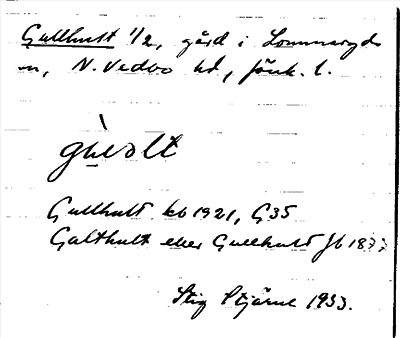 Gullhult 1/2, gård i Lommaryds
sn, N. Vedbo hd, Jönk. l.
gu̠̇olt
Gullhult kb 1921, G35
Galthult eller Gullhult Jb 1877
Stig Stjärne 1933.